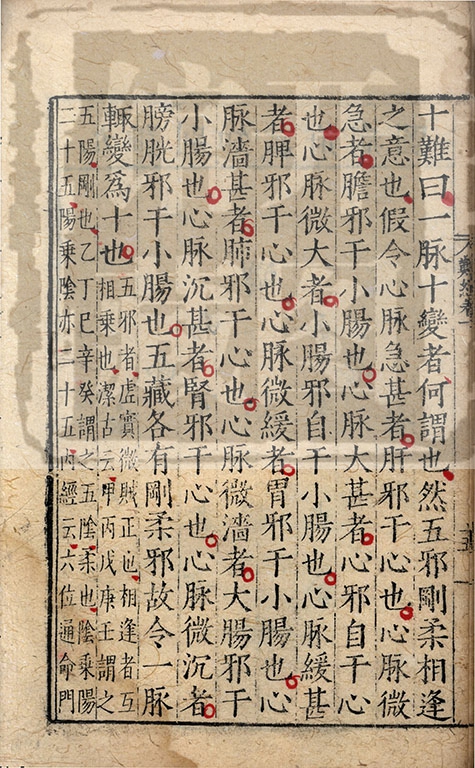 十難曰一脉十變者何謂也然五邪剛柔相逢
之意也假令心脉急甚者肝邪干心也心脉微
急者膽邪干小腸也心脉大甚者心邪自干心
也心脉微大者小腸邪自干小腸也心脉緩甚
者脾邪干心也心脉微緩者胃邪干小腸也心
脉濇甚者肺邪干心也心脉微濇者大腸邪干
小腸也心脉沉甚者腎邪干心也心脉微沉者
膀胱邪干小腸也五藏各有剛柔邪故令一脉
輒變爲十也
五邪者虛實微賊正也相逢者互
相乘也潔古云甲丙戊庚壬謂之
五陽剛也乙丁巳辛癸謂之五陰柔也陰乘陽
二十五陽乘陰亦二十五内經云六位通命門